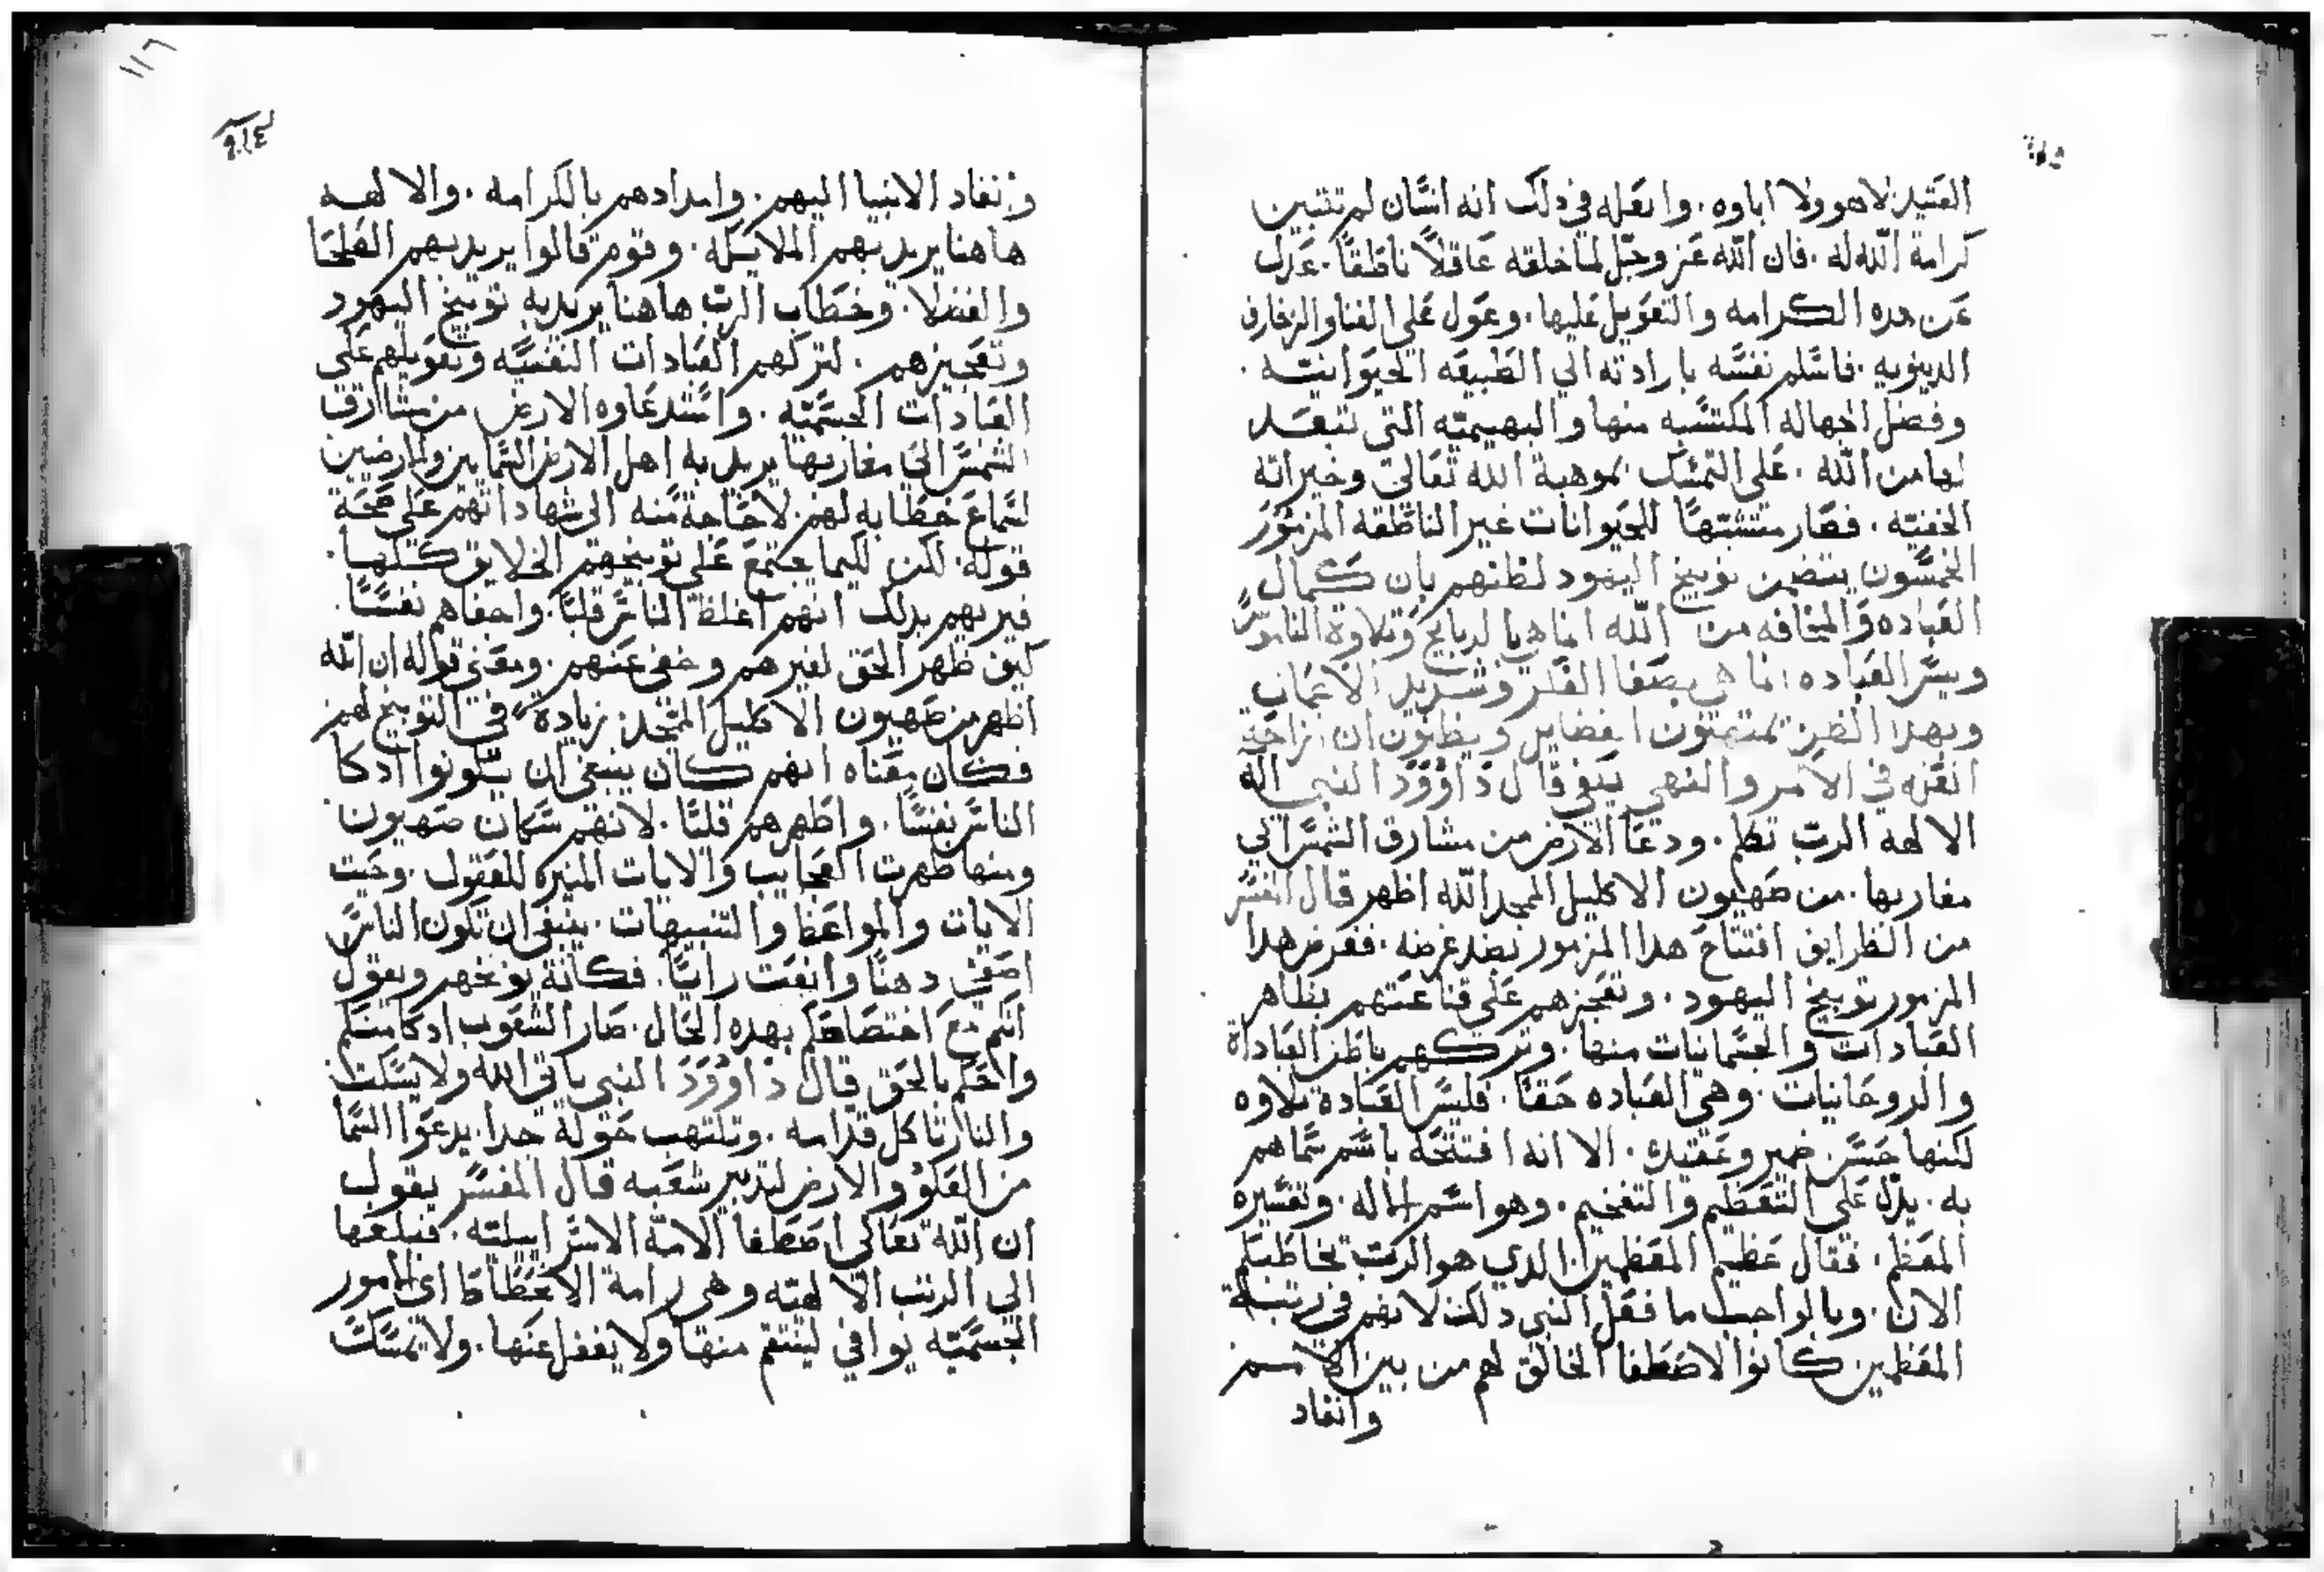 العتيد لا هو ولا اباوه. وانعله في دلك انه انسان لم تتبين
كرامة الله له. فان الله عز وجل لما خلقه عاقلاً ناطقاً. عدل
عن هده الكرامه والتعويل عليها. وعول على الفنا والزخارف
الدينويه. فاسلم نفسه بارادته الي الطبيعه الحيوانيه.
وفضل الجهاله المكتسبه منها والبهيميه التي تبعد
لها من الله. على التمسك بموهبة الله تعالى وخيراته
الخفيه. فصار متشبهاً للحيوانات غير الناطقه المزمور
الخمسون يتضمن توبيخ اليهود لظنهم بان كمال
العباده والمخافه من الله انما هي بالدبايح وتلاوة الناموس
وسر العباده انما هي بصفا القلب وشديد الاعمال
وبهدا الظن يمتهنون الفضايل ويظنون ان ازاحة
العله في الامر والنهي يبقي قال داوود النبي اله
الالهه الرب تكلم. ودعا الارض من مشارق الشمس الي
مغاربها. من صهيون الاكليل الممجد الله اظهر قال المفسر
من الطرايق افتتاح هدا المزمور بضد غرضه. فغرض هدا
المزمور توبيخ اليهود. وتعجزهم على قناعتهم بظاهر
العبادات والجسمانيات منها. وتركهم باطن العبادة
والروحانيات. وهي العباده حقاً. فليس العباده تلاوه
لكنها حسن ضمير وعقيده. الا انه افتتحه باسم سماهم
به. يدل على التعظيم والتفخيم. وهو اسم الاله. وتفسيره
المعظم. فقال عظيم المعظمين الدي هو الرب تخاطبكم
الان. وبالواجب ما فعل النبي دلك لانهم في رتبة
المعظمين كانوا لاصطفا الخالق لهم من بين الامم
وانفاد
وانفاد الانبيا اليهم. وامدادهم بالكرامه. والالهه
هاهنا يريد بهم الملايكه. وقوم قالوا يريد بهم الصلحا
والفضلا. وخطاب الرب هاهنا يريد به توبيخ اليهود
وتعجيزهم. لتركهم العبادات النفسيه وتعويلهم على
العبادات الجسميه. واستدعاوه الارض من مشارق
الشمس الى مغاربها يريد به اهل الارض السمايين والارضيين
لسماع خطابه لهم. لا حاجة منه الى شهاداتهم على صحة
قوله. لكن لكيما يجتمع على توبيخهم الخلايق كلها.
فيريهم بدلك انهم اغلظ الناس قلباً. واجفاهم نفساً.
كيف ظهر الحق لغيرهم وخفي عنهم. ومعنى قوله ان الله
اظهر من صهيون الاكليل الممجد زيادة في التوبيخ لهم
فكان معناه انهم كان ينبغي ان يكونوا ادكا
الناس نفساً. واطهرهم قلباً. لانهم سكان صهيون
ومنها ظهرت العجايب والايات المنيره للعقول. وحيت
الايات والمواعظ والتنبيهات. ينبغي ان تكون الناس
اصفى دهناً وانعت راياً. فكانه يوبخهم ويقول
انتم مع اختصاصكم بهده الحال. صار الشعوب ادكا منكم
واحكم بالحق قال داوود النبي ياتي الله ولا يسكت
والنار تاكل قدامه. وتلتهب حوله جدا. يدعوا السما
من العلو والارض لتدبير شعبه قال المفسر يقول
ان الله تعالى اصطفا الامة الاسراييليه. فبلغها
الي الرتب الالهيه وهي رامة الانحطاط اي الامور
الجسميه يوافي لينتقم منها ولا يغفل عنها. ولا يمسك